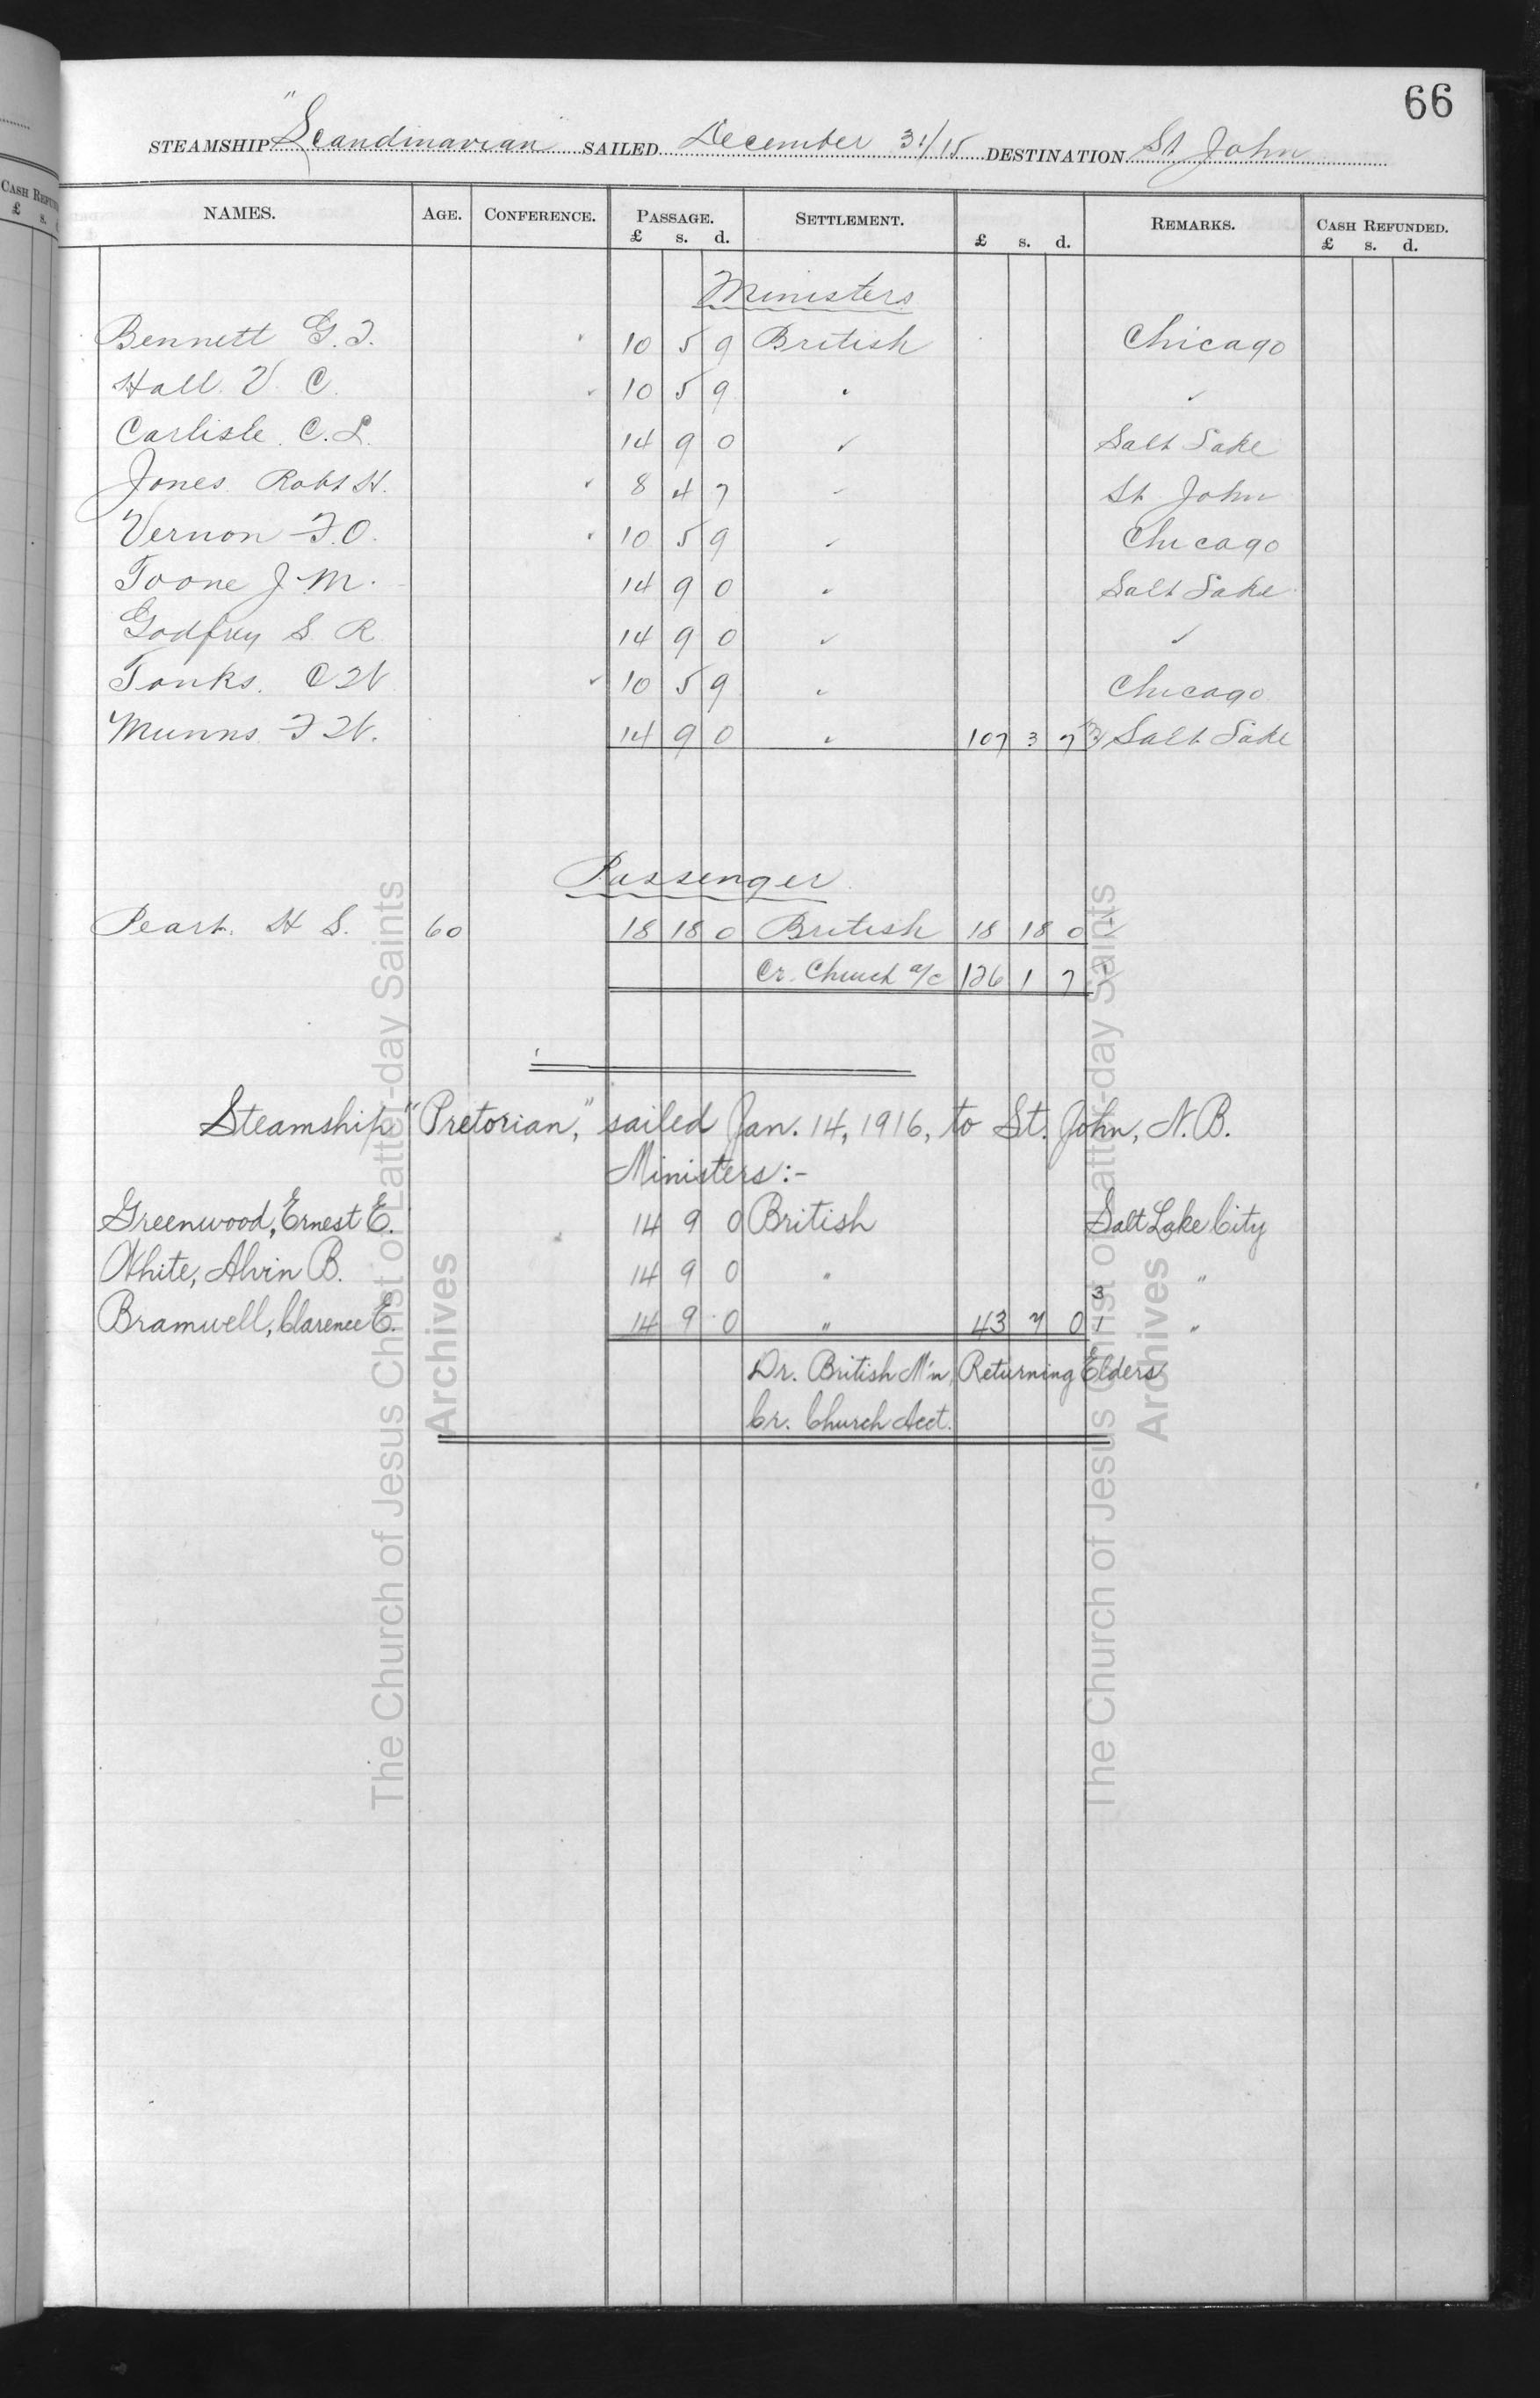 66
STEAMSHIP "Scandinavian SAILED December 31/15 DESTINATION St John
NAMES. AGE. CONFERENCE. PASSAGE. £ s. d. SETTLEMENT. £ s. d. REMARKS. CASH REFUNDED. £ s. d.
Ministers
Bennett G. F. 10 5 9 British Chicago
Hall. V. C. 10 5 9 " "
Carlisle. C. L. 14 9 0 " Salt Lake
Jones. Robt H. 8 4 7 " St John
Vernon F. O. 10 5 9 " Chicago
Toone J. M. 14 9 0 " Salt Lake
Godfrey S. R. 14 9 0 " "
Tonks. C W 10 5 9 " Chicago
Munns. F W. 14 9 0 " 107 3 7 Salt Lake
Passenger
Peart. H S. 60 18 18 0 British 18 18 0
Cr. Church a/c 126 1 7
Steamship "Pretorian," sailed Jan. 14, 1916, to St. John, N.B.
Ministers:-
Greenwood, Ernest E. 14 9 0 British Salt Lake City
White, Alvin B. 14 9 0 " "
Bramwell, Clarence E. 14 9 0 " 43 7 0 3/1 "
Dr. British M'n, Returning Elders
Cr. Church Acct.
The Church of Jesus Christ of Latter-day Saints
Archives
The Church of Jesus Christ of Latter-day Saints
Archives
CASH REFUN
£ s.